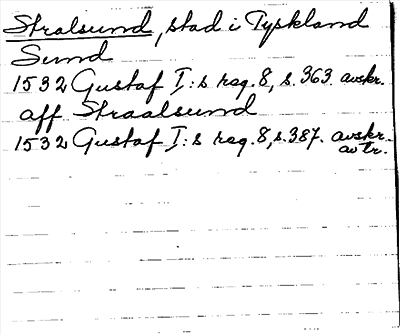 Stralsund, stad i Tyskland
Sund
1532 Gustaf I:s reg. 8, s. 363. avskr.
aff Straalsund
1532 Gustaf I:s reg. 8, s. 387. avskr.
avtr.